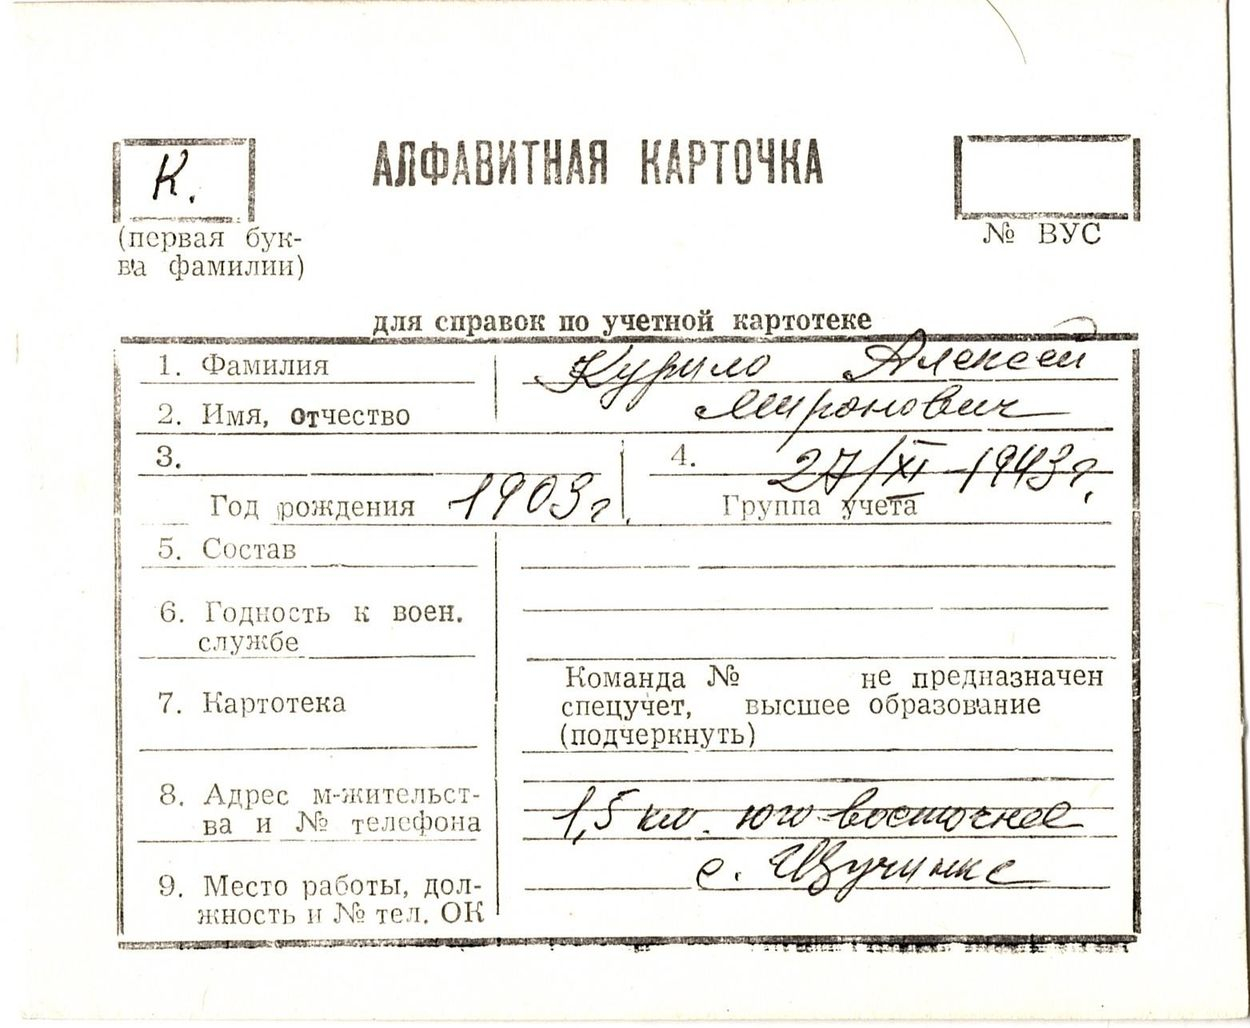 К.
АЛФАВИТНАЯ КАРТОЧКА
(первая бук-
ва фамилии)
№ ВУС
для справок по учетной картотеке
1. Фамилия Курило Алексей
2. Имя, отчество Миронович
3. 4. 27/XI-1943г.
Год рождения 1903г. Группа учета
5. Состав
6. Годность к воен.
службе
7. Картотека
Команда № не предназначен
спецучет, высшее образование
(подчеркнуть)
8. Адрес м-жительст-
ва и № телефона
1,5 км. юго-восточнее
с. Щучинке
9. Место работы, дол-
жность и № тел. ОК